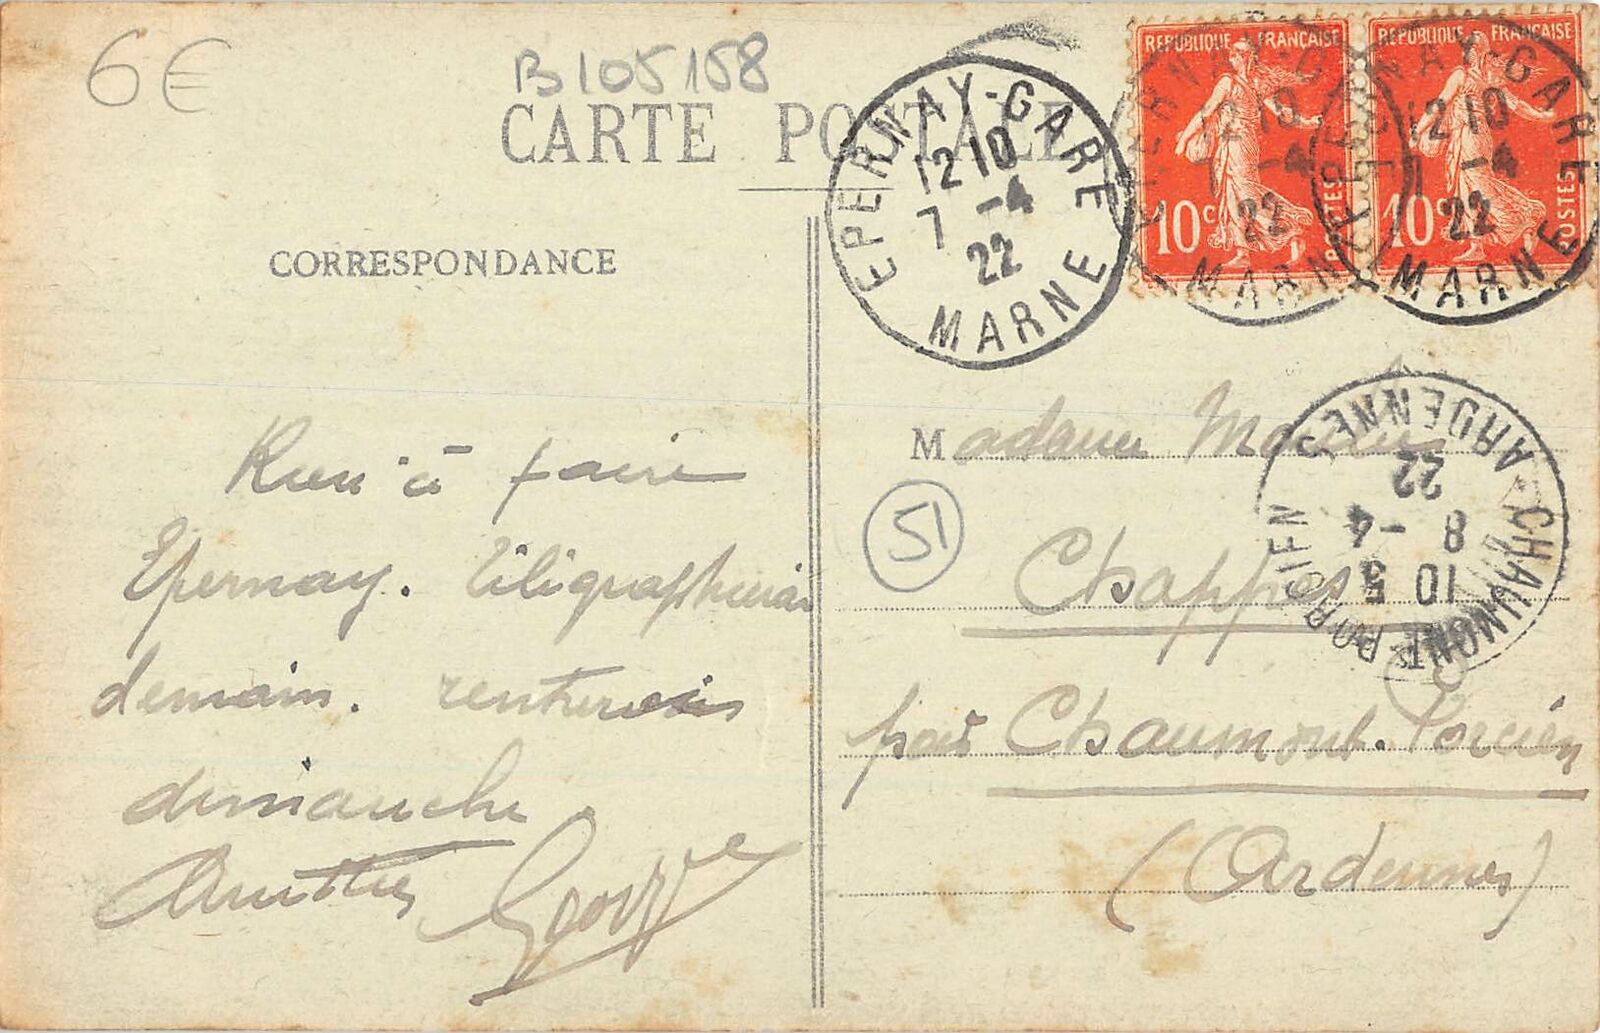 6€
B105158
CARTE POSTALE
CORRESPONDANCE
EPERNAY-GARE
12 10
7 -4
22
MARNE
REPUBLIQUE FRANÇAISE
10c
POSTES
REPUBLIQUE FRANÇAISE
10c
POSTES
EPERNAY-GARE
12 10
7 -4
22
MARNE
EPERNAY-GARE
12 10
7 -4
22
MARNE
CHAUMONT-PORCIEN
10 5
8 -4
22
ARDENNES
Rien à faire
Epernay.
demain. rentrerais
dimanche
Madame
51
Chappes
par Chaumont-Porcien
(Ardennes)